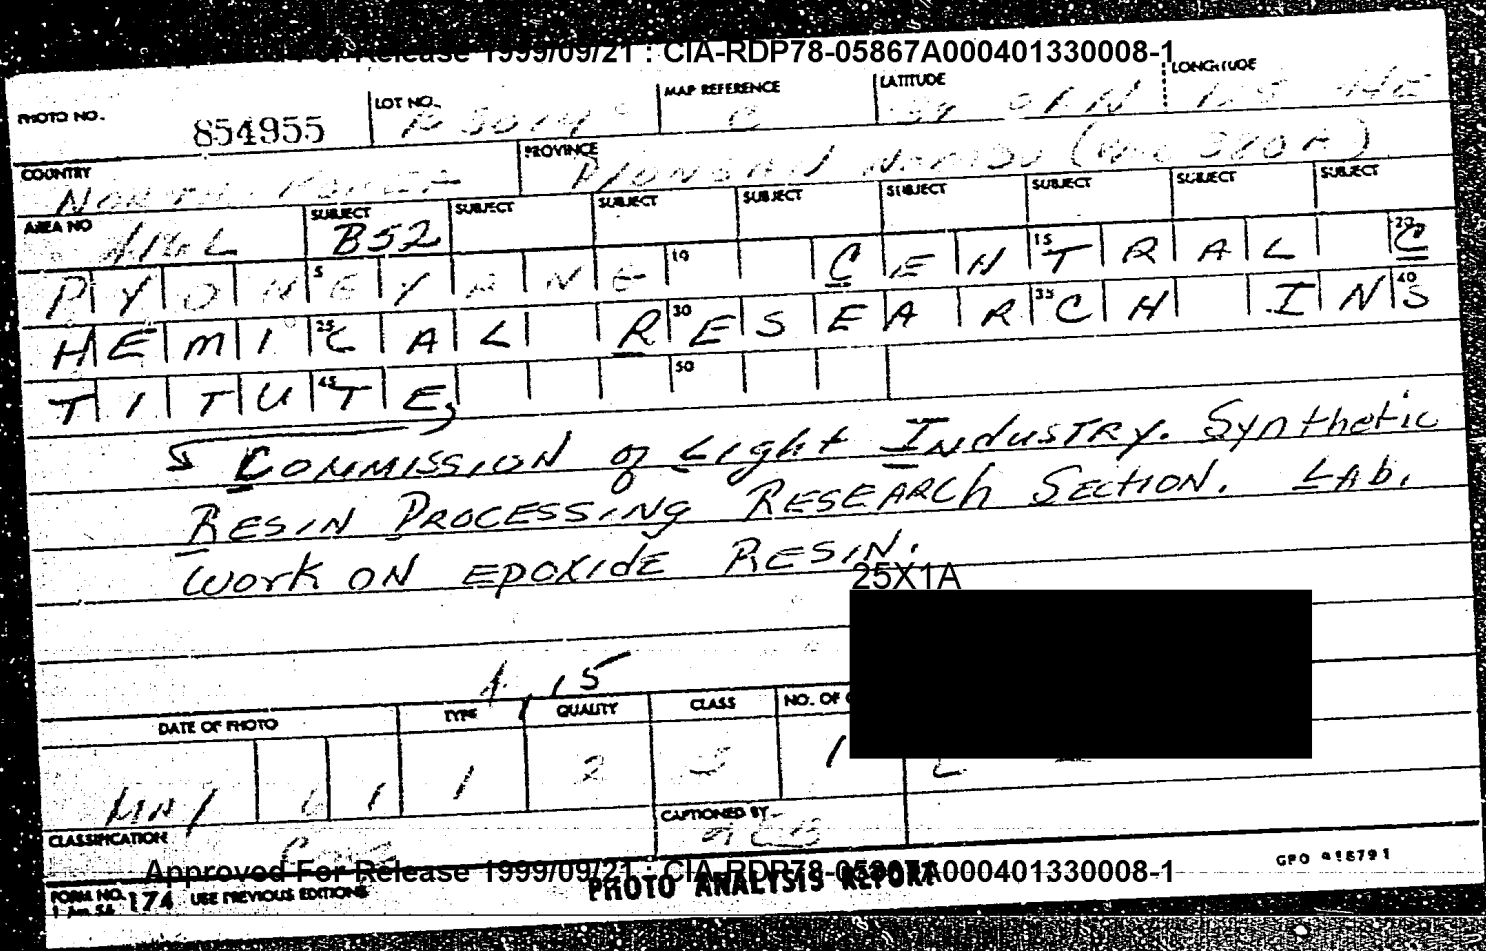 Approved For Release 1999/09/21 : CIA-RDP78-05867A000401330008-1
PHOTO NO. 854955 LOT NO. MAP REFERENCE LATITUDE LONGITUDE
COUNTRY NORTH KOREA PROVINCE
AREA NO SUBJECT B52 SUBJECT SUBJECT SUBJECT SUBJECT SUBJECT SUBJECT SUBJECT
5 10 CENTRAL 15 20 C
HEMICAL 25 RESEARCH 30 35 INS 40
TITUTE, 45 50
COMMISSION of Light INdUSTRY. Synthetic
RESIN PROCESSING RESEARCh SECTION. LAb.
Work ON EPOXIdE RESIN.
25X1A
DATE OF PHOTO TYPE QUALITY CLASS NO. OF
1 2 1
CLASSIFICATION CAPTIONED BY
Approved For Release 1999/09/21 : CIA-RDP78-05867A000401330008-1
GPO 918791
FORM NO. 174 USE PREVIOUS EDITIONS PHOTO ANALYSIS REPORT
1 Jan. 56